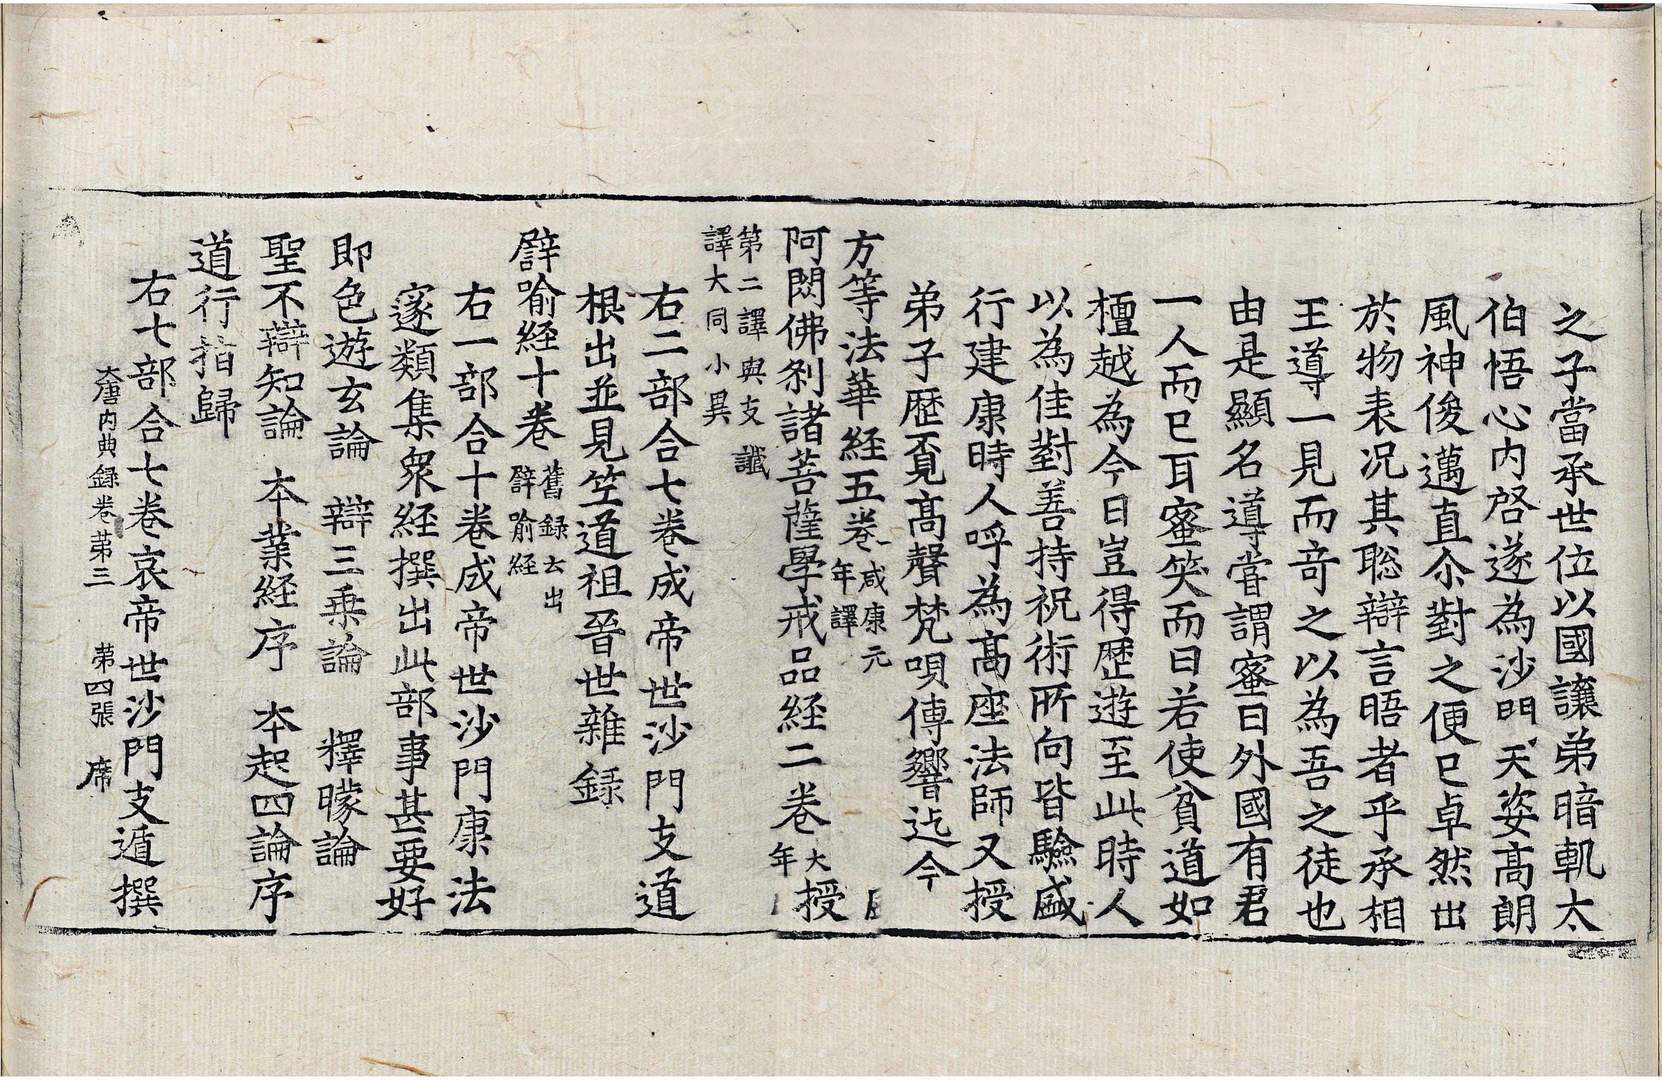 之子當承世位以國讓弟暗軌太
伯悟心內啓遂為沙門天姿高朗
風神俊邁直尒對之便已卓然出
於物表况其聡辯言晤者乎承相
王導一見而竒之以為吾之徒也
由是顯名導甞謂蜜曰外國有君
一人而已耳蜜笑而曰若使貧道如
檀越為今日豈得歷遊至此時人
以為佳對善持祝術所向皆驗盛
行建康時人呼為高座法師又授
弟子歷覔高聲梵唄傳響迄今
方等法華経五卷 咸康元
年譯
阿閦佛刹諸菩薩學戒品経二卷 授
大
年
第二譯與支讖
譯大同小異
右二部合七卷成帝世沙門支道
根出並見竺道祖晉世雜録
譬喻経十卷 舊録云出
譬喻経
右一部合十卷成帝世沙門康法
邃類集衆経撰出此部事甚要好
即色遊玄論 辯三乗論 釋矇論
聖不辯知論 本業経序 本起四論序
道行指歸
右七部合七卷哀帝世沙門支遁撰
大唐内典録卷苐三 苐四張 席